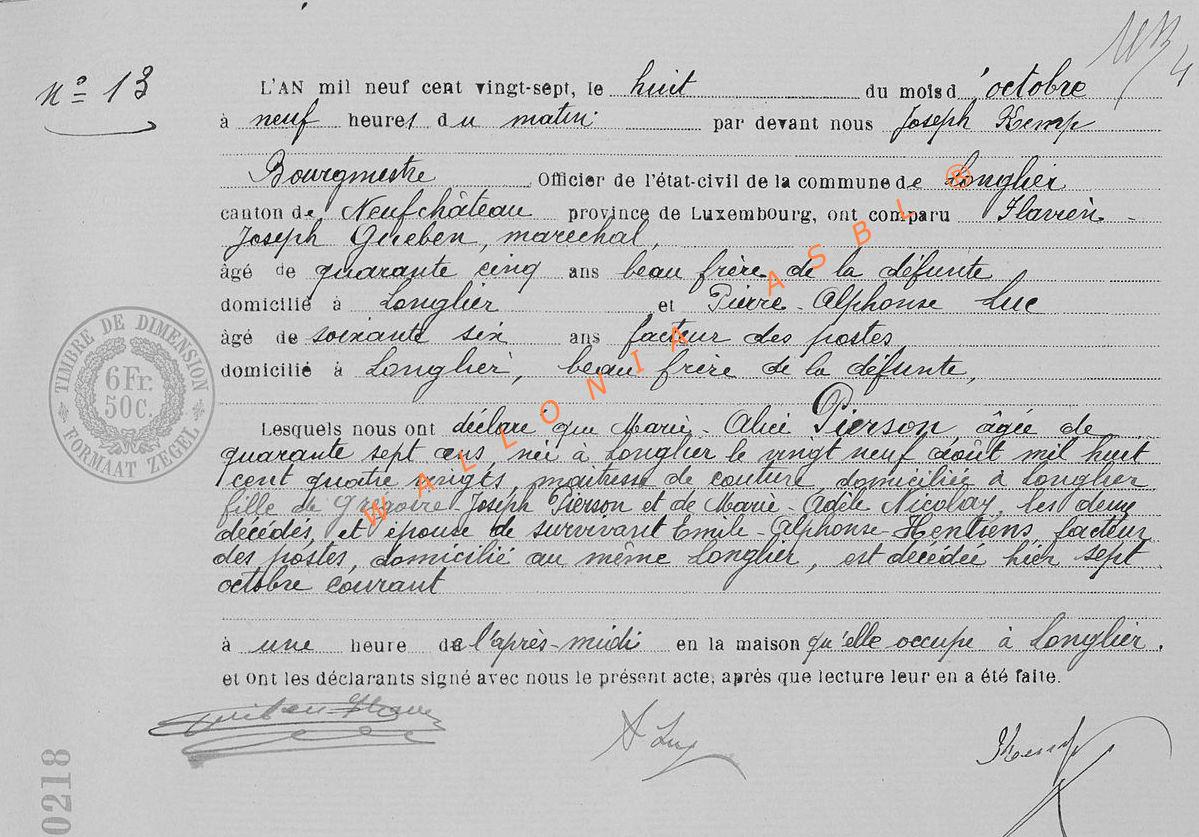 nº 13
L'AN mil neuf cent vingt-sept, le huit du mois d'octobre
à neuf heures du matin par devant nous Joseph Kemp
Bourgmestre Officier de l'état-civil de la commune de Longlier
canton de Neufchâteau province de Luxembourg, ont comparu Flavien
Joseph Gueben, maréchal,
âgé de quarante cinq ans beau frère de la défunte
domicilié à Longlier et Pierre-Alphonse Luc
âgé de soixante six ans facteur des postes
domicilié à Longlier, beau frère de la défunte,
Lesquels nous ont déclaré que Marie-Alice Pierson, âgée de
quarante sept ans, née à Longlier le vingt neuf août mil huit
cent quatre vingts, maîtresse de couture, domiciliée à Longlier
fille de Grégoire Joseph Pierson et de Marie-Adèle Nicolay, les deux
décédés, et épouse de survivant Emile-Alphonse-Hentjens, facteur
des postes, domicilié au même Longlier, est décédée hier sept
octobre courant
à une heure de l'après-midi en la maison qu'elle occupe à Longlier.
et ont les déclarants signé avec nous le présent acte, après que lecture leur en a été faite.
A Luc
JKemp
TIMBRE DE DIMENSION
6 Fr.
50 C.
FORMAAT ZEGEL
0218
WALLONIA ASBL ®